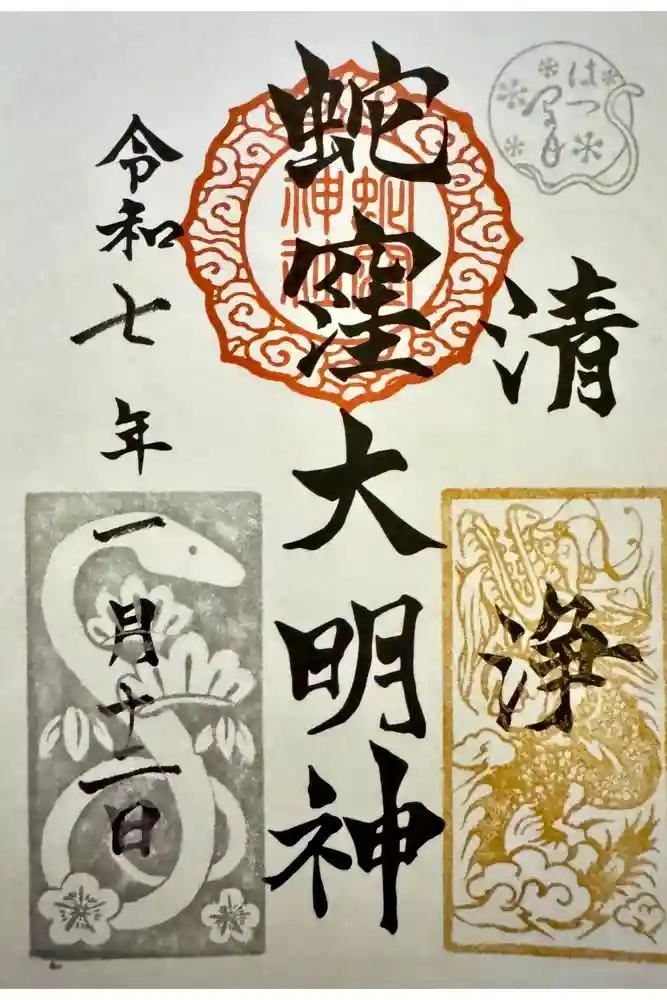 はつ
清
浄
蛇窪大明神
蛇窪
神社
令和七年一月十二日